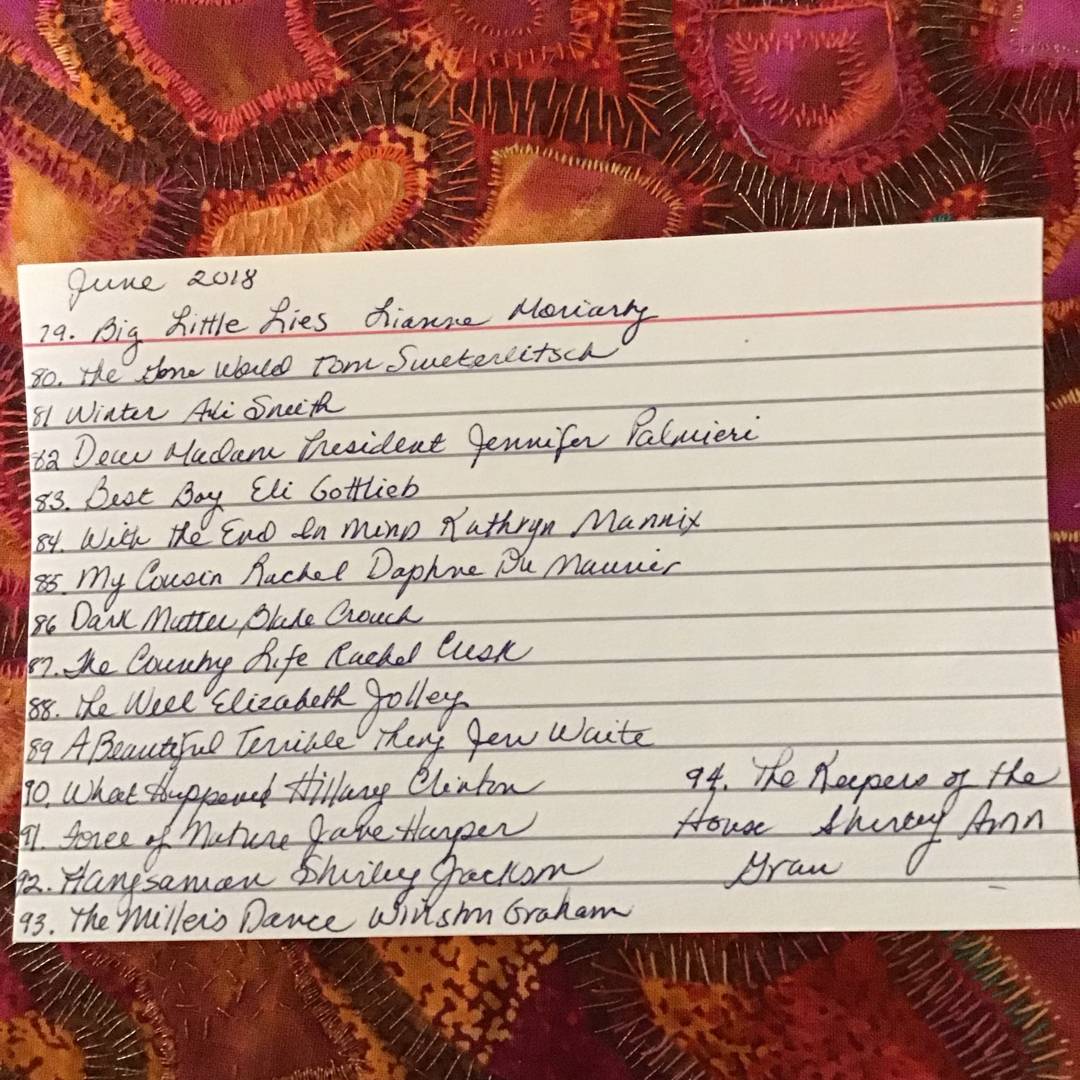 June 2018
79. Big Little Lies Lianne Moriarty
80. The Gone World Tom Sweterlitsch
81 Winter Ali Smith
82 Dear Madam President Jennifer Palmieri
83. Best Boy Eli Gottlieb
84. With the End In Mind Kathryn Mannix
85. My Cousin Rachel Daphne Du Maurier
86 Dark Matter Blake Crouch
87. The Country Life Rachel Cusk
88. The Well Elizabeth Jolley
89 A Beautiful Terrible Thing Jen Waite
90. What Happened Hillary Clinton
91. Force of Nature Jane Harper
92. Hangsaman Shirley Jackson
93. The Miller's Dance Winston Graham
94. The Keepers of the
House Shirley Ann
Grau